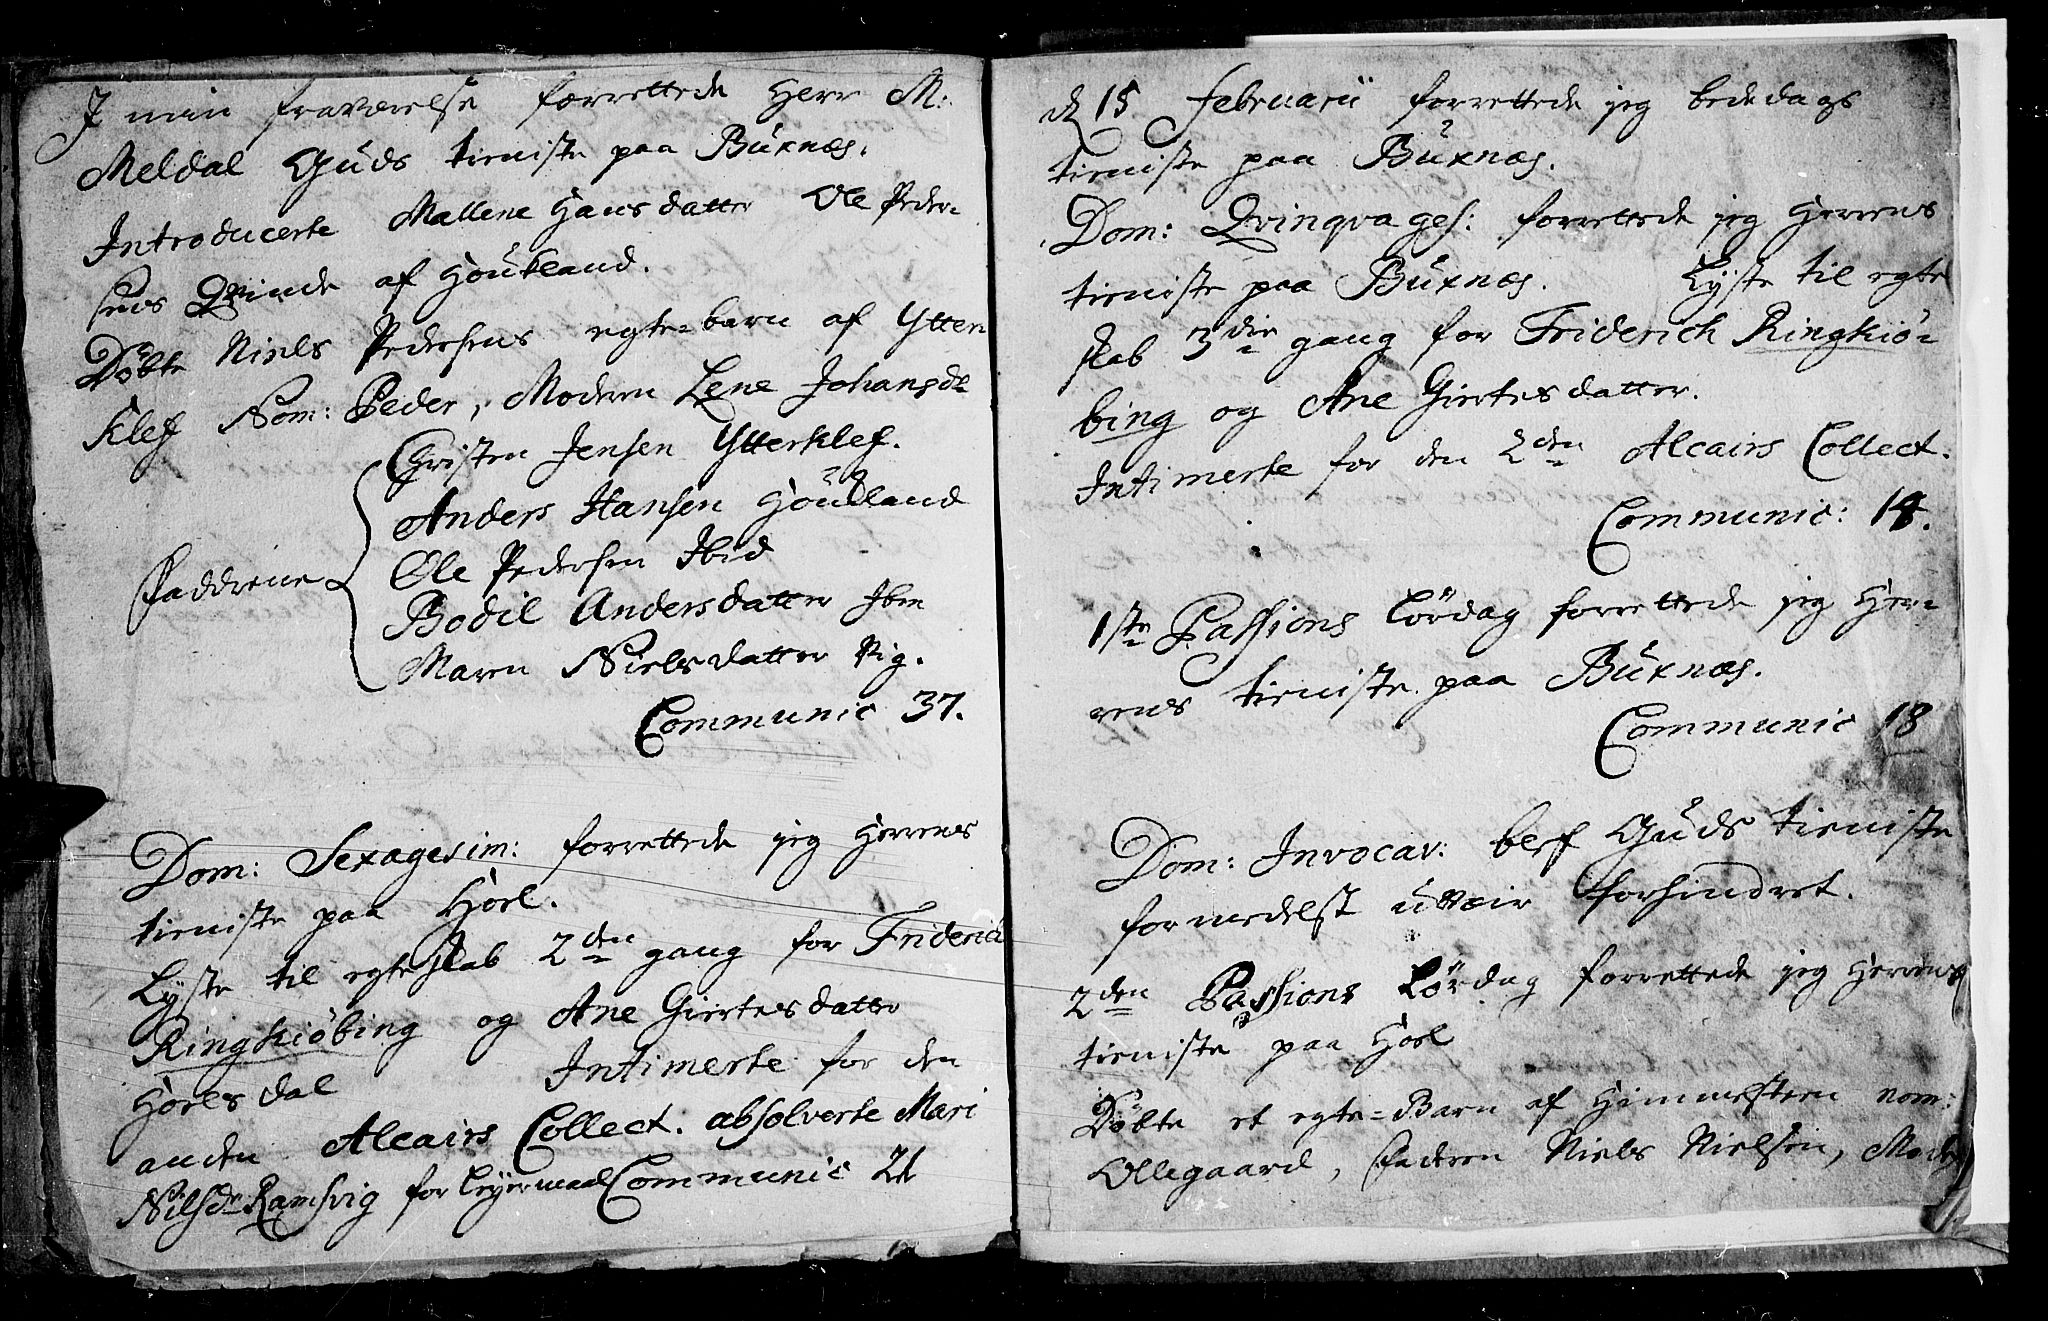 I min fraværelse forrettede Herr M:
Meldal Guds tieniste paa Buxnæs.
Introducerte Mallene Hansdatter Ole Peder-
sens Qvinde af Houkland.
Döbte Niels Pedersens egte-barn af Ytter
Klef Nom: Peder, Moderen Lene Johansdr
Christen Jensen Ytterklef.
Anders Hansen Houkland
Ole Pedersen Ibid
Faddrene
Bodil Andersdatter Ibm
Maren Nielsdatter Vig.
Communic 37.
Dom: Sexagesim: forrettede jeg Herrens
tieniste paa Hoel.
Lyste til egteskab 2den gang for Friderich
Ringkiöbing og Ane Giertesdatter
Hoelsdal Intimerte for den
anden Alcairs Collect. absolverte Mari
Nilsdr Ramsvig for Leyermaal Communic 21
d 15 Februarii forrettede jeg bededags
tieniste paa Buxnæs.
Dom: Qvinqvages: forrettede jeg Herrens
tieniste paa Buxnæs. Lyste til egte
skab 3die gang for Friderich Ringkiö-
bing og Ane Giertesdatter.
Intimerte for den 2den Alcairs Collect.
Communic: 14.
1ste Passions Lördag forrettede jeg Her-
rens tieniste paa Buxnæs.
Communic 18
Dom: Invocav: blef Guds tieniste
formedelst uveir forhindret.
2den Passions Lördag forrettede jeg Herrens
tieniste paa Hoel
Döbte et egte-Barn af Himmesteen nom:
Ollegaard, Faderen Niels Nielsen, Mode